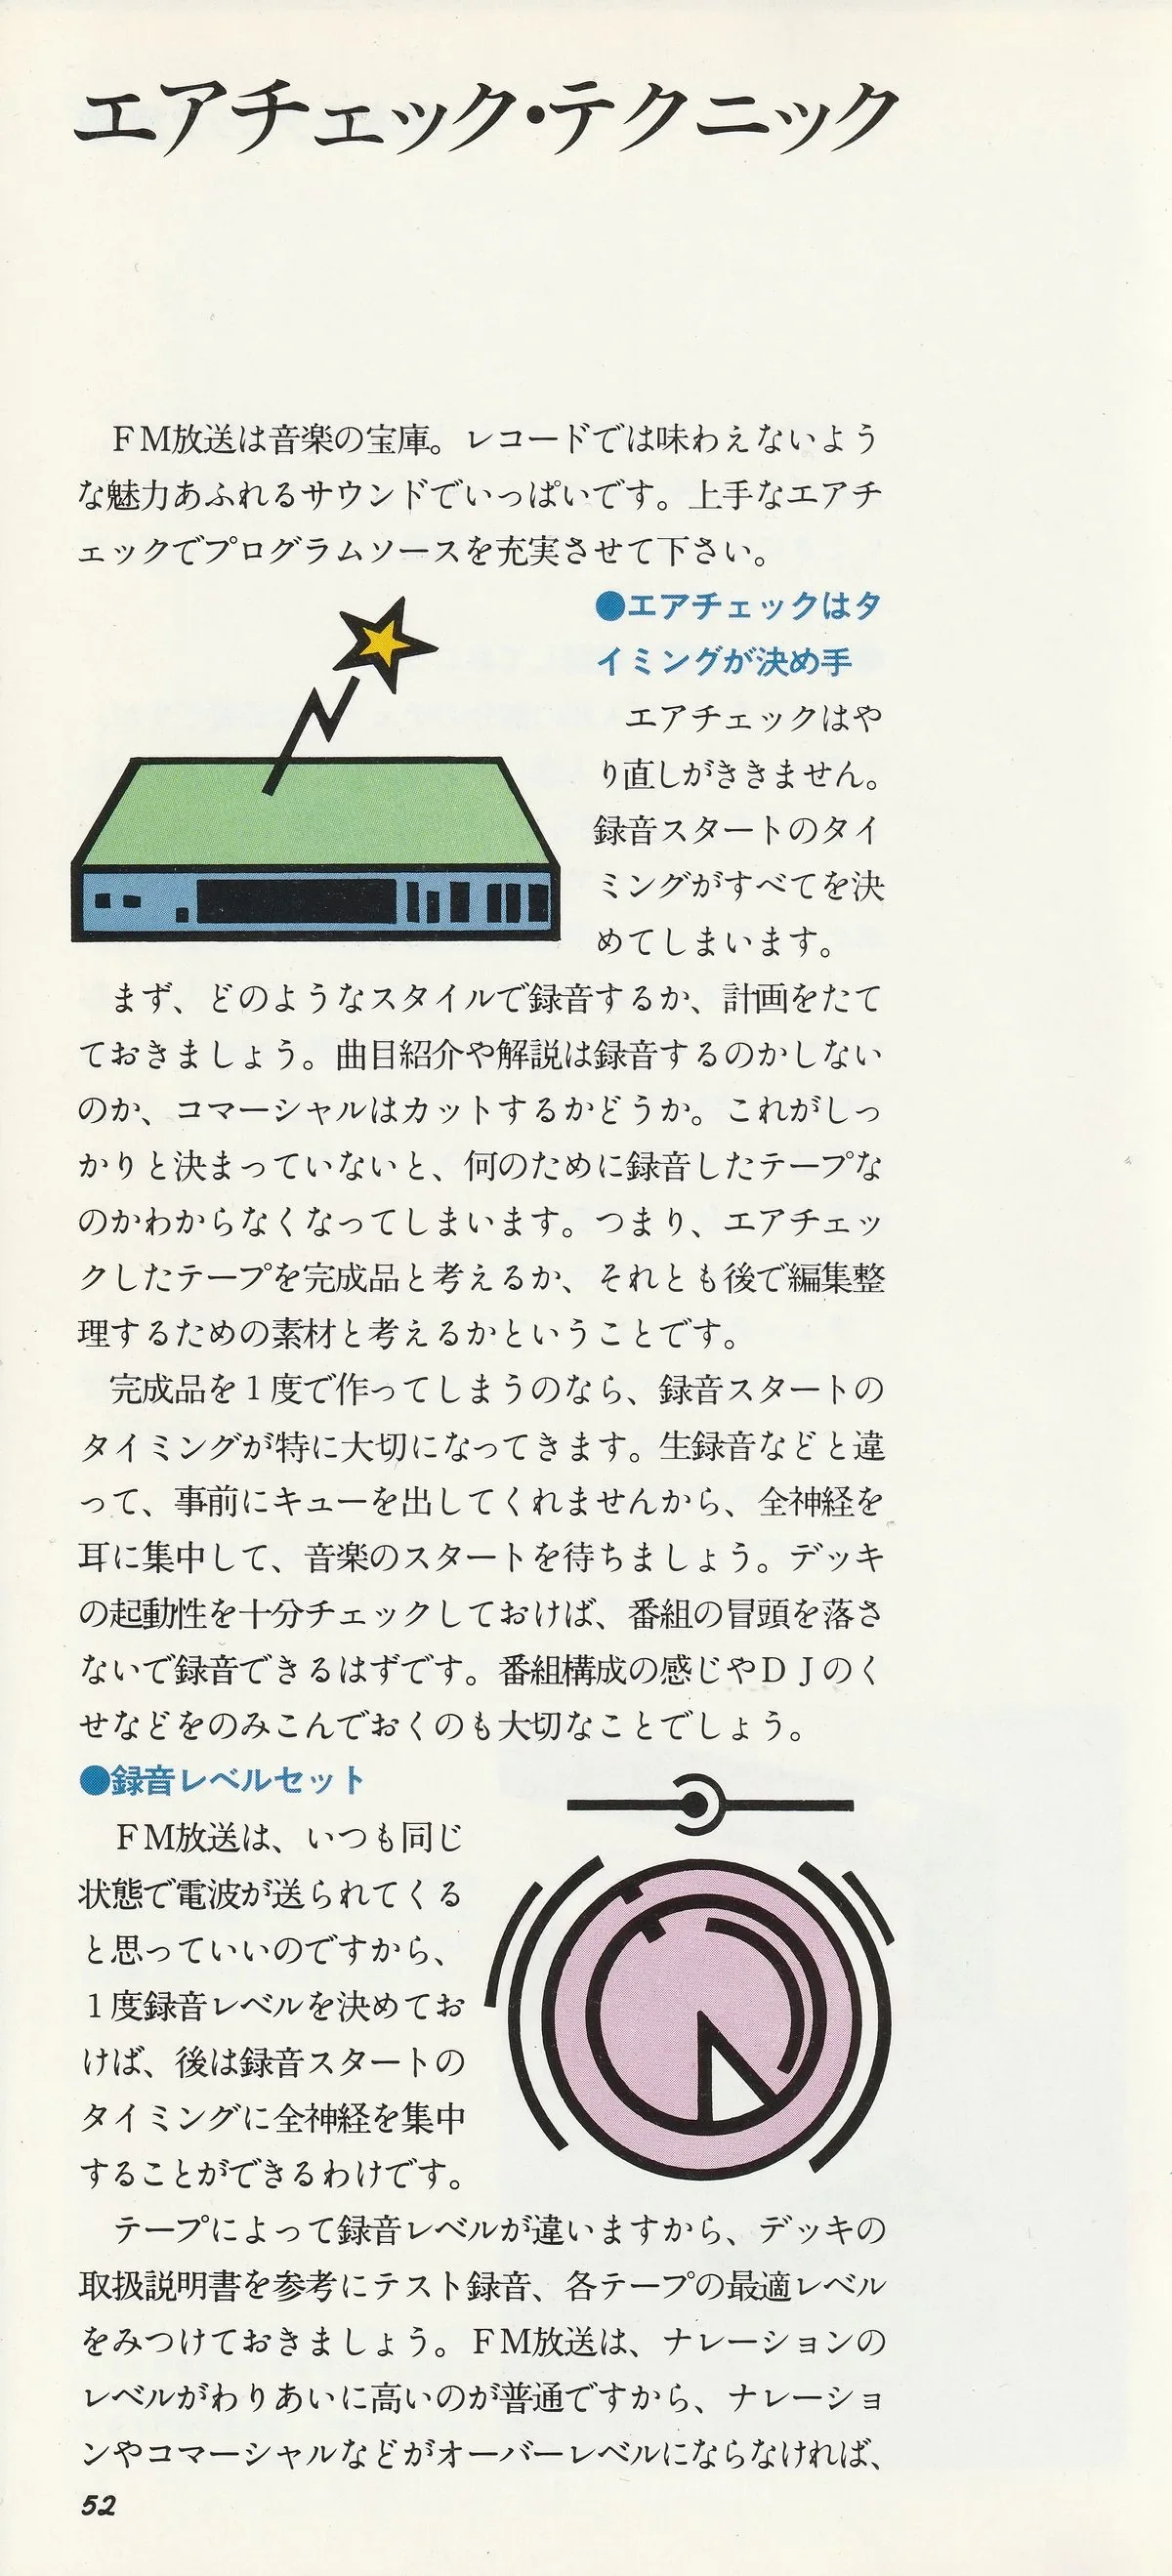 エアチェック・テクニック
　FM放送は音楽の宝庫。レコードでは味わえないよう
な魅力あふれるサウンドでいっぱいです。上手なエアチ
ェックでプログラムソースを充実させて下さい。
●エアチェックはタ
イミングが決め手
　エアチェックはや
り直しがききません。
録音スタートのタイ
ミングがすべてを決
めてしまいます。
　まず、どのようなスタイルで録音するか、計画をたて
ておきましょう。曲目紹介や解説は録音するのかしない
のか、コマーシャルはカットするかどうか。これがしっ
かりと決まっていないと、何のために録音したテープな
のかわからなくなってしまいます。つまり、エアチェッ
クしたテープを完成品と考えるか、それとも後で編集整
理するための素材と考えるかということです。
　完成品を1度で作ってしまうのなら、録音スタートの
タイミングが特に大切になってきます。生録音などと違
って、事前にキューを出してくれませんから、全神経を
耳に集中して、音楽のスタートを待ちましょう。デッキ
の起動性を十分チェックしておけば、番組の冒頭を落さ
ないで録音できるはずです。番組構成の感じやDJのく
せなどをのみこんでおくのも大切なことでしょう。
●録音レベルセット
　FM放送は、いつも同じ
状態で電波が送られてくる
と思っていいのですから、
1度録音レベルを決めてお
けば、後は録音スタートの
タイミングに全神経を集中
することができるわけです。
　テープによって録音レベルが違いますから、デッキの
取扱説明書を参考にテスト録音、各テープの最適レベル
をみつけておきましょう。FM放送は、ナレーションの
レベルがわりあいに高いのが普通ですから、ナレーショ
ンやコマーシャルなどがオーバーレベルにならなければ、
52